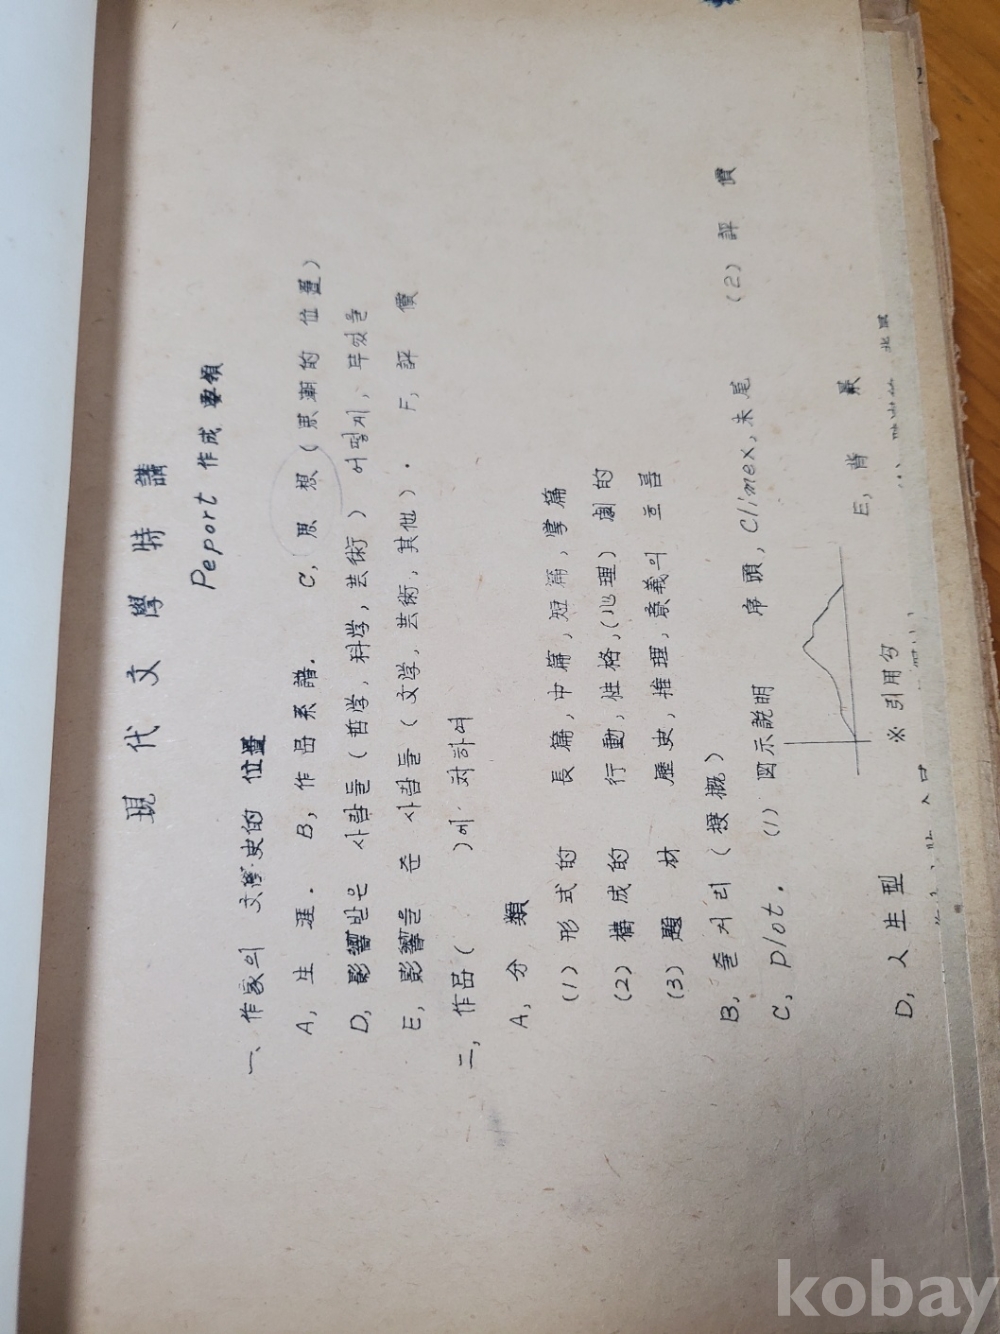 現代文學特講
Peport 作成 要領
一、作家의 文學史的 位置
A, 生 涯. B, 作品系譜. C, 思 想 (思潮的 位置)
D, 影響받은 사람들 (哲学, 科学, 芸術) 어떻게, 무엇을
E, 影響을 준 사람들 (文学, 芸術, 其他). F, 評 價
二, 作品 ( )에 対하여
A, 分 類
(1) 形式的 長篇, 中篇, 短篇, 掌篇
(2) 構成的 行動, 性格, (心理) 劇的
(3) 題 材 歷史, 推理, 意義의 흐름
B, 줄거리 (梗概)
C, Plot. (1) 図示説明 序頭, Climex, 末尾 (2) 評 價
D, 人生型 ※ 引用勾 E, 背 景
kobay